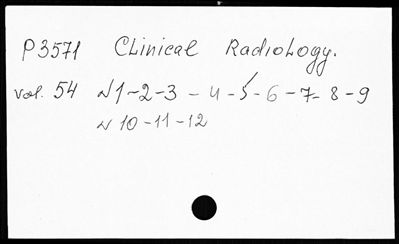 P3571 Clinical Radiology.
vol. 54 N1-2-3-4-5-6-7-8-9
N 10-11-12